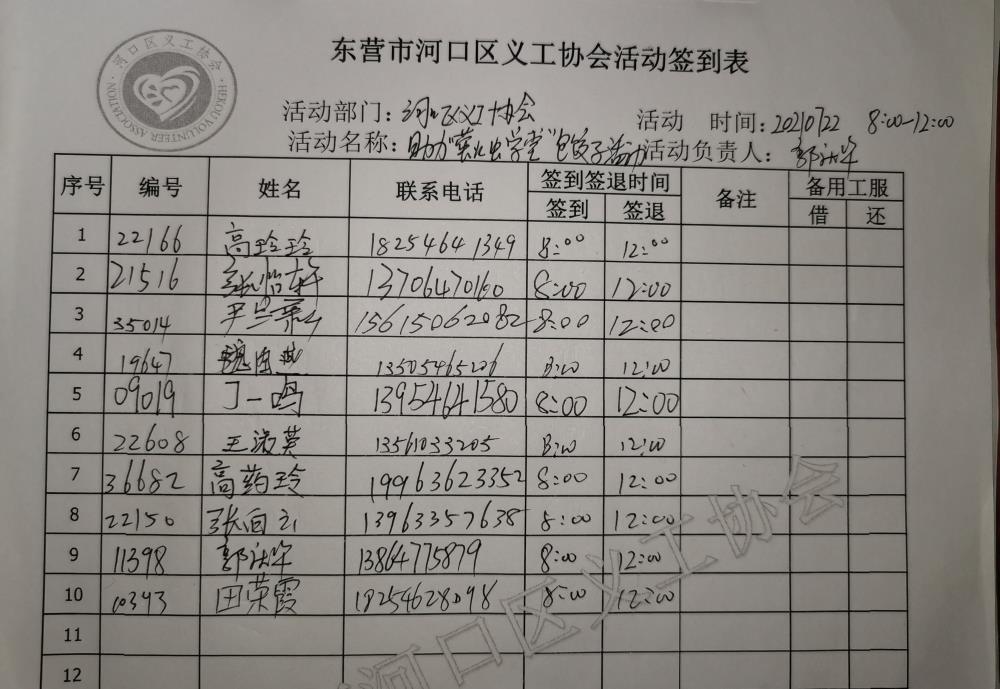 河口区义工协会
HEKOU VOLUNTEER ASSOCIATION
东营市河口区义工协会活动签到表
活动部门：河口区义工协会 活动 时间：2021.07.22 8:00-12:00
活动名称：助力"萤火虫学堂"包饺子活动 活动负责人：
序号 编号 姓名 联系电话 签到签退时间 备注 备用工服
签到 签退 借 还
1 22166 高玲玲 18254641349 8:00 12:00
2 21516 张怡轩 13706470160 8:00 12:00
3 35014 15615062082 8:00 12:00
4 19647 13505465206 8:00 12:00
5 09019 丁一鸣 13954641580 8:00 12:00
6 22608 王淑英 13561033205 8:00 12:00
7 36682 高药玲 19963623352 8:00 12:00
8 22150 张向云 13963357638 8:00 12:00
9 11398 13864775879 8:00 12:00
10 10393 田荣霞 18254628098 8:00 12:00
11
12
河口区义工协会